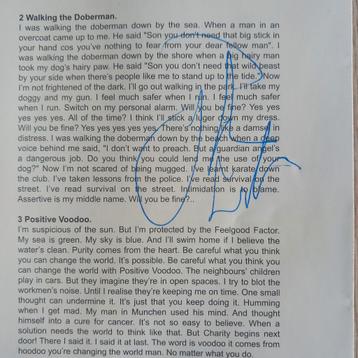 2 Walking the Doberman.
I was walking the doberman down by the sea. When a man in an
overcoat came up to me. He said "Son you don't need that big stick in
your hand cos you've nothing to fear from your dear fellow man". I
was walking the doberman down by the shore when a big hairy man
took my dog's hairy paw. He said "Son you don't need that wild beast
by your side when there's people like me to stand up to the tide." Now
I'm not frightened of the dark. I'll go out walking in the park. I'll take my
doggy and my gun. I feel much safer when I run. I feel much safer
when I run. Switch on my personal alarm. Will you be fine? Yes yes
yes yes yes. All of the time? I think I'll stick a down my dress.
Will you be fine? Yes yes yes yes yes. There's nothing like a damsel in
distress. I was walking the doberman down by the beach when a deep
voice behind me said, "I don't want to preach. But a guardian angel's
a dangerous job. Do you think you could lend me the use of your
dog?" Now I'm not scared of being mugged. I've learnt karate down
the club. I've taken lessons from the police. I've read survival on the
street. I've read survival on the street. Intimidation is to blame.
Assertive is my middle name. Will you be fine?..
3 Positive Voodoo.
I'm suspicious of the sun. But I'm protected by the Feelgood Factor.
My sea is green. My sky is blue. And I'll swim home if I believe the
water's clean. Purity comes from the heart. Be careful what you think
you can change the world. It's possible. Be careful what you think you
can change the world with Positive Voodoo. The neighbours' children
play in cars. But they imagine they're in open spaces. I try to blot the
workmen's noise. Until I realise they're keeping me on time. One small
thought can undermine it. It's just that you keep doing it. Humming
when I get mad. My man in Munchen used his mind. And thought
himself into a cure for cancer. It's not so easy to believe. When a
solution needs the world to think like that. But Charity begins next
door! There I said it. I said it at last. The word is voodoo it comes from
hoodoo you're changing the world man. No matter what you do.